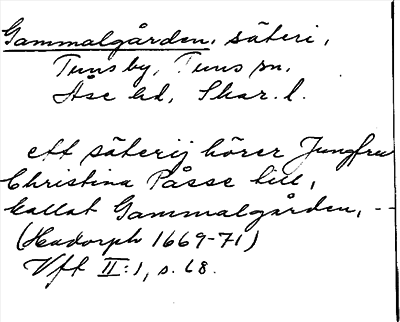 Gammalgården, säteri,
Tunsby, Tuns sn,
Åse hd, Skar. l.
ett säterij hörer Jungfru
Christina Påsse till,
kallat Gammalgården, --
(Hadorph 1669-71)
Vft II:1, s. 68.